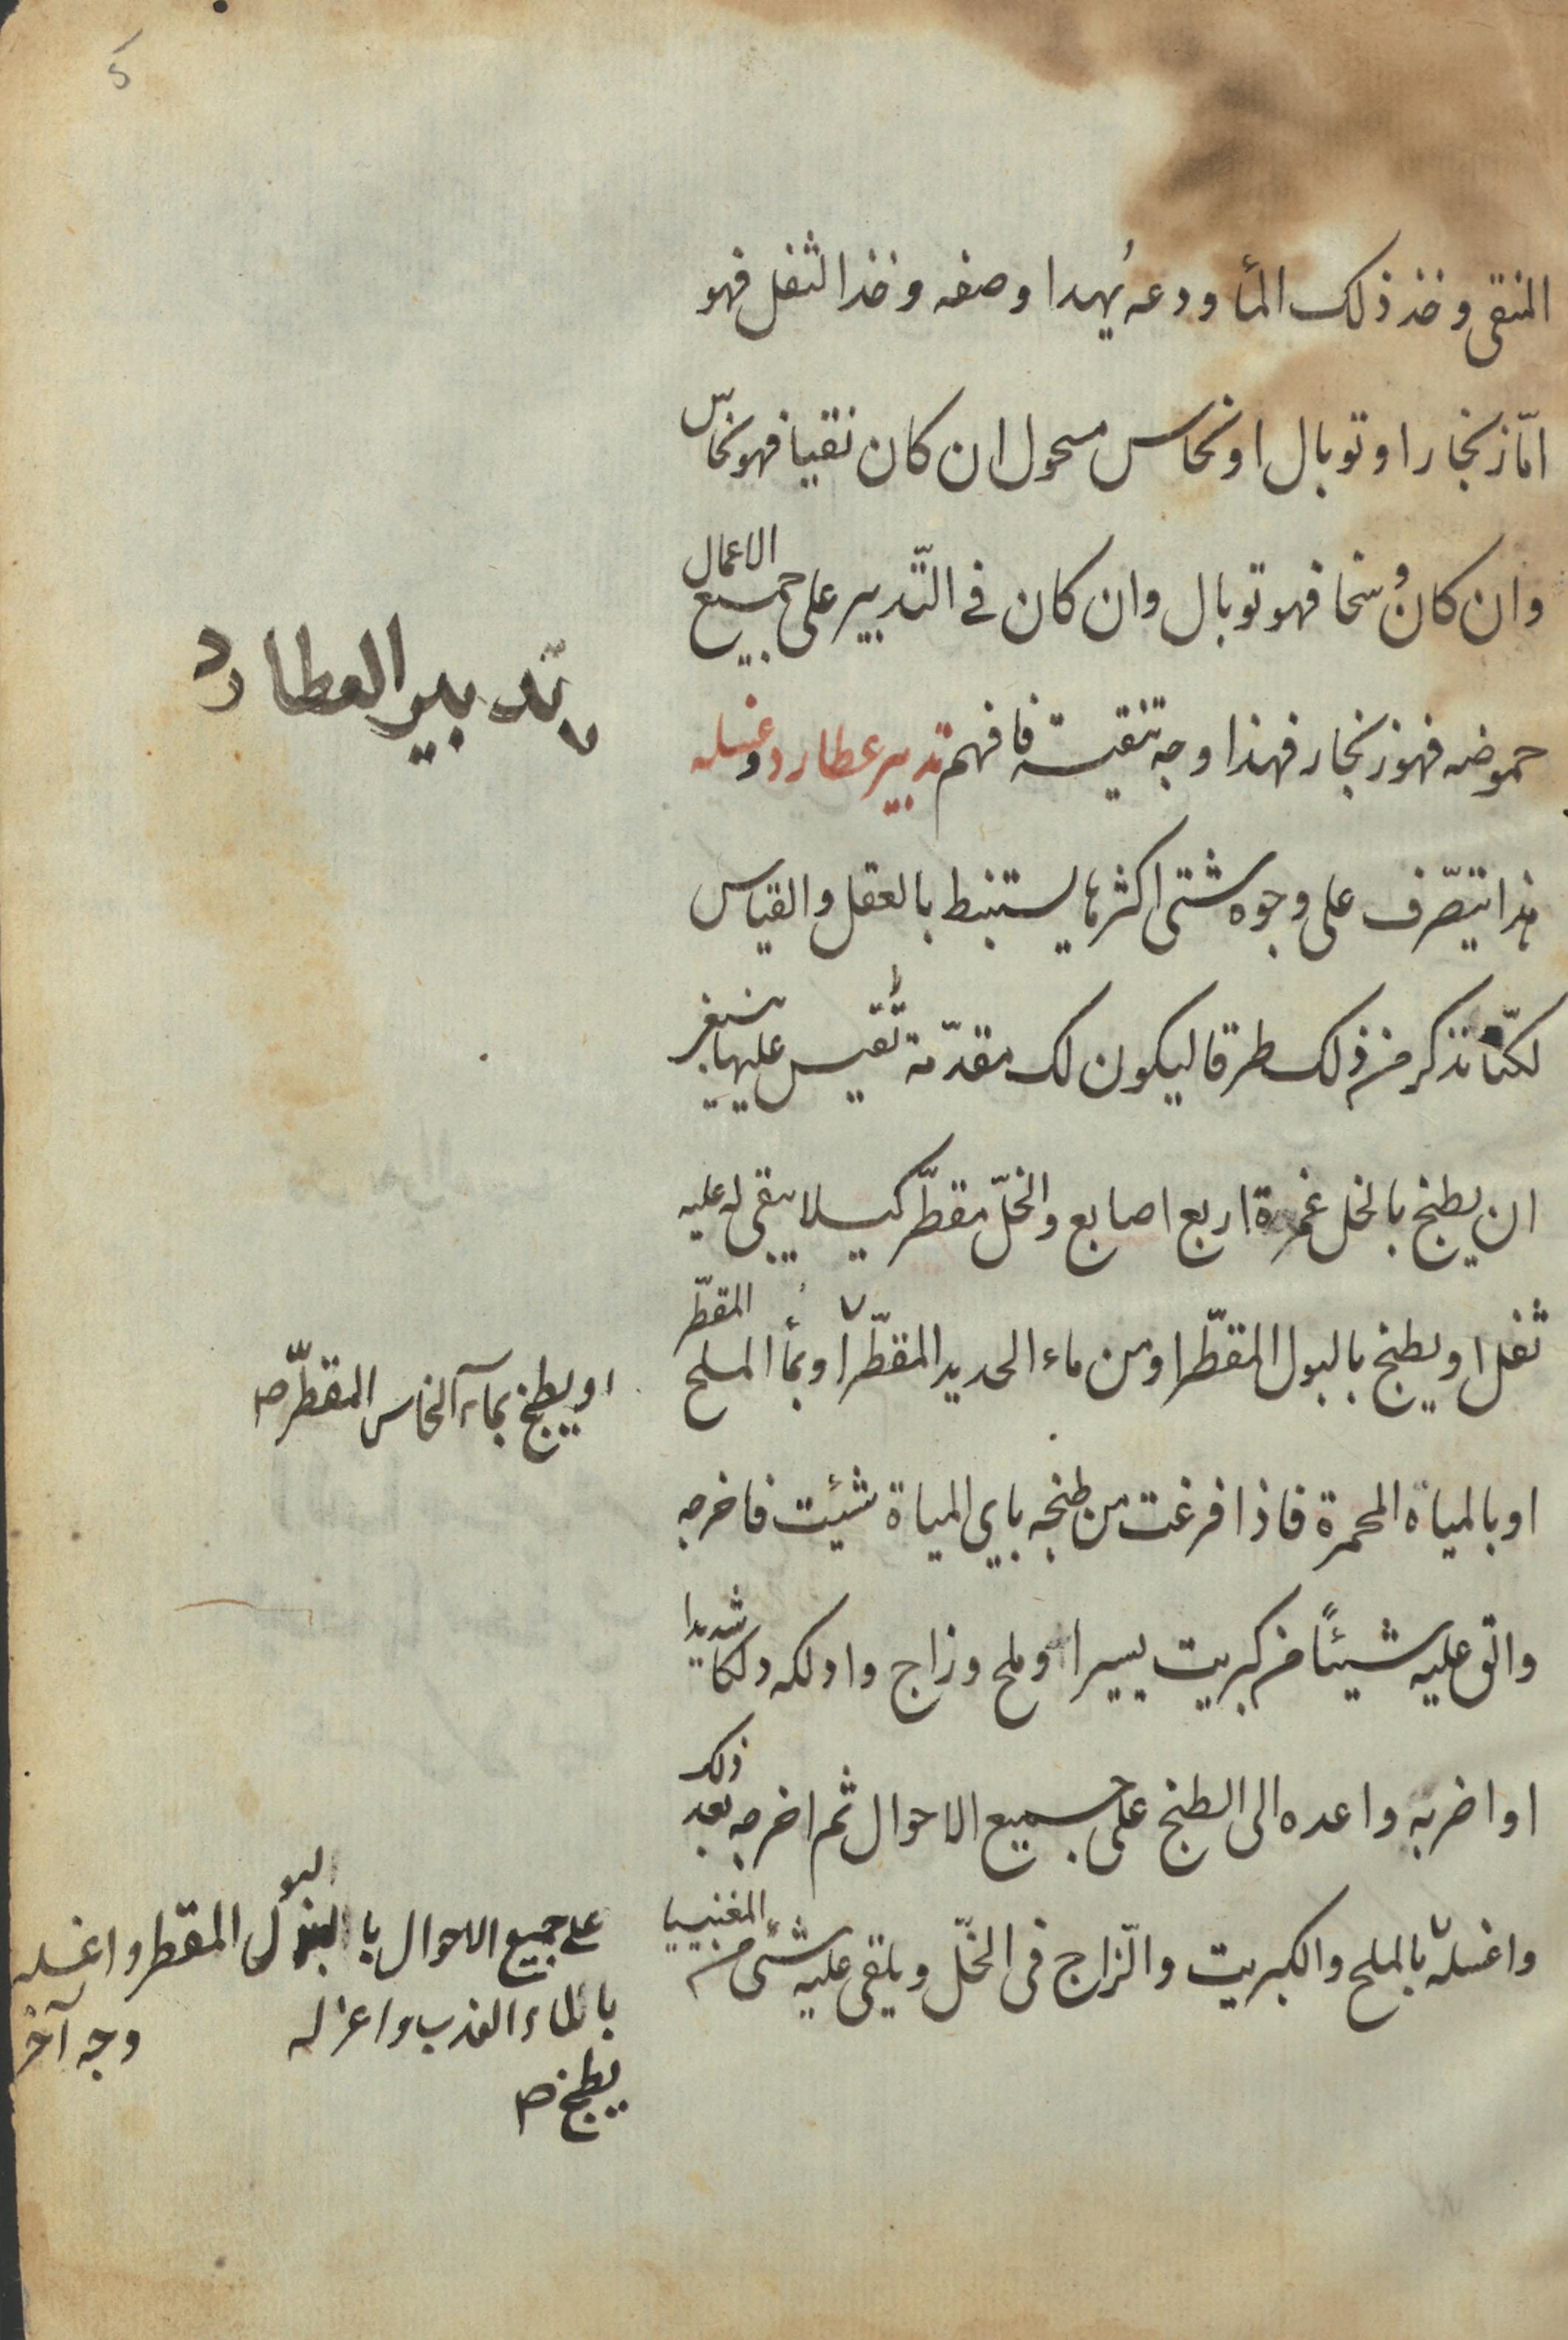 5
المنقى وخذ ذلك المأ ودعه يُهدا وصفه وخذ الثفل فهو
امّا زنجار او توبال او نحاس محول ان كان نقيا فهو نحاس
وان كان وسخا فهو توبال وان كان في التّدبير على جميع الاعمال
حموضه فهو زنجار فهذا وجه تنقيته فافهم تدبير عطارد وغسله
هذا يتصّرف على وجوه شتى اكثرها يستنبط بالعقل والقياس
لكنّا نذكر من ذلك طرقا ليكون لك مقدّمة تقيس عليها ينبغي
ان يطبخ بالخل غمرة اربع اصابع والخلّ مقطّر كيلا يبقى له عليه
ثفل او يطبخ بالبول المقطّر او من ماء الحديد المقطّر او بمأ الملح المقطّر
او بالمياة المحمرة فاذا فرغت من طبخه باي المياة شئيت فاخرجه
والق عليه شيئاً من كبريت يسيرا وملح وزاج وادلكه دلكا شديدا
او اضربه واعده الى الطبخ على جميع الاحوال ثم اخرجه بعد ذلك
واغسله بالملح والكبريت والّزاج فى الخلّ ويلقى عليه شئ من المغنيسيا
تدبير العطارد
او يطبخ بماء النحاس المقطّر صح
على جميع الاحوال بالبول المقطر واغسله
لبو
بالماء العذب واعزله وجه آخر
يطبخ صح